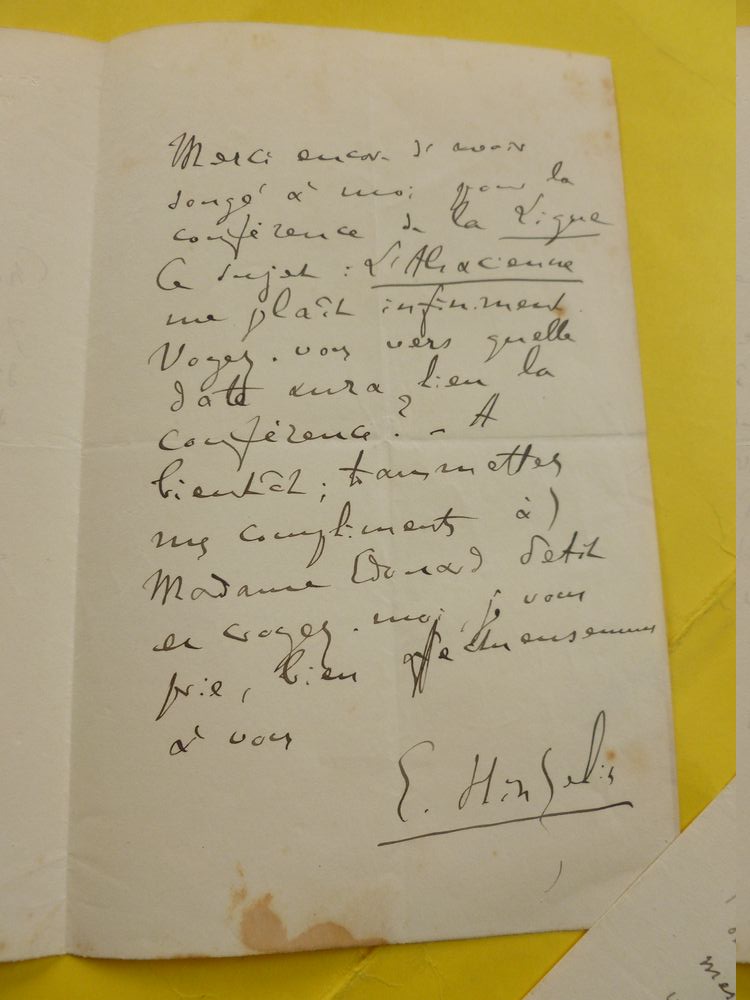 Merci encore d'avoir
songé à moi pour la
conférence de la Ligue
Ce sujet : L'Alsacienne
me plaît infiniment
Voyez-vous vers quelle
date aura lieu la
conférence ? - A
bientôt ; transmettez
mes compliments à
Madame Edouard Petit
et croyez-moi, je vous
prie, bien affectueusement
à vous
E. Hinzelin